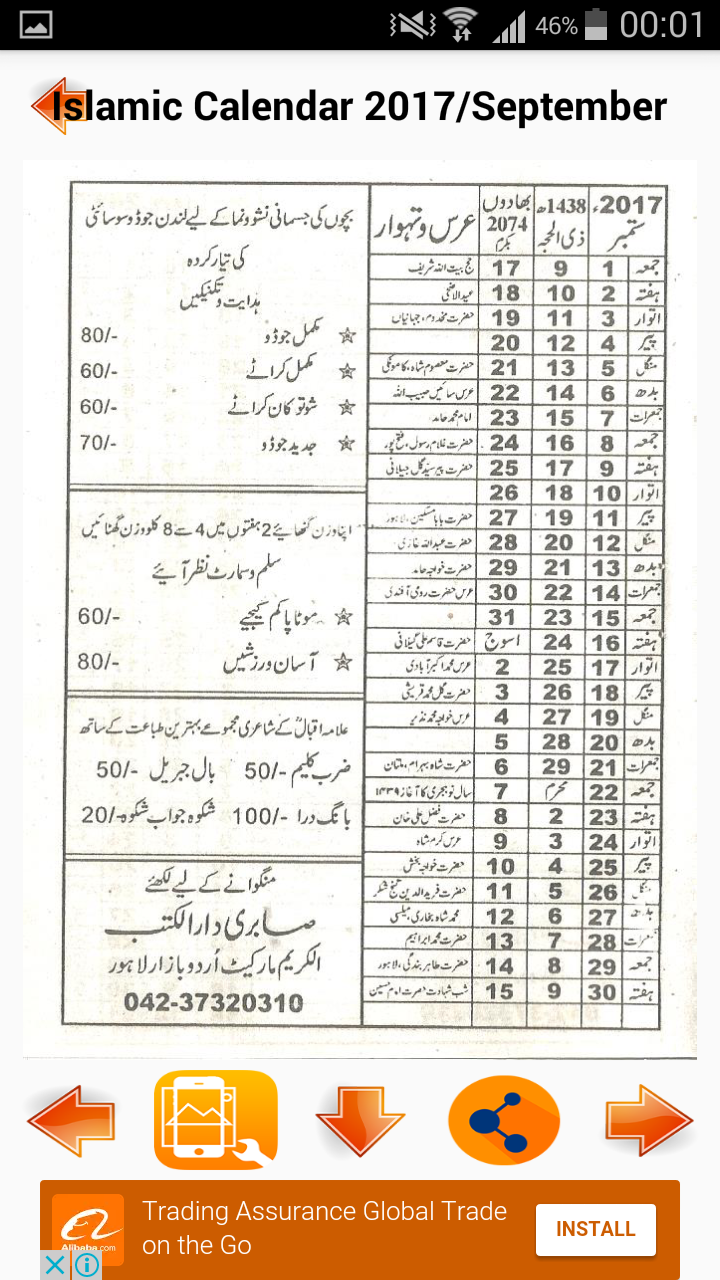 46% 00:01
Islamic Calendar 2017/September
بچوں کی جسمانی نشوونما کے لیے لندن جوڈو سوسائٹی
کی تیار کردہ
ہدایت و تکنیکیں
مکمل جوڈو 80/-
مکمل کراٹے 60/-
شوتوکان کراٹے 60/-
جدید جوڈو 70/-
اپنا وزن گھٹائیے 2 ہفتوں میں 4 سے 8 کلو وزن گھٹائیں
سلم و سمارٹ نظر آئیے
موٹاپا کم کیجیے 60/-
آسان ورزشیں 80/-
علامہ اقبالؒ کے شاعری مجموعے بہترین طباعت کے ساتھ
ضرب کلیم 50/- بال جبریل 50/-
بانگ درا 100/- شکوہ جواب شکوہ 20/-
منگوانے کے لیے لکھئے
صابری دارالکتب
الکریم مارکیٹ اُردو بازار لاہور
042-37320310
2017ء ستمبر 1438ھ ذی الحجہ بھادوں 2074 عرس و تہوار
جمعہ 1 9 17 حج بیت اللہ شریف
ہفتہ 2 10 18 عید الاضحیٰ
اتوار 3 11 19 حضرت مخدوم جہانیاں
پیر 4 12 20
منگل 5 13 21 حضرت معصوم شاہ، کامونکی
بدھ 6 14 22 عرس سائیں حبیب اللہ
جمعرات 7 15 23 امام محمد حامد
جمعہ 8 16 24 حضرت غلام رسول، فتح پور
ہفتہ 9 17 25 حضرت پیر سید گل جیلانی
اتوار 10 18 26
پیر 11 19 27 حضرت بابا مسکین، لاہور
منگل 12 20 28 حضرت عبداللہ غازی
بدھ 13 21 29 حضرت خواجہ حامد
جمعرات 14 22 30 عرس حضرت رومی آفندی
جمعہ 15 23 31
ہفتہ 16 24 اسوج حضرت قاسم علی گیلانی
اتوار 17 25 2 عرس محمد اکبر آبادی
پیر 18 26 3 حضرت گل محمد قریشی
منگل 19 27 4 عرس خواجہ محمد نذیر
بدھ 20 28 5
جمعرات 21 29 6 حضرت شاہ بہرام، ملتان
جمعہ 22 محرم 7 سال نو ہجری کا آغاز ۱۴۳۹
ہفتہ 23 2 8 حضرت فضل علی خان
اتوار 24 3 9 عرس کرم شاہ
پیر 25 4 10 حضرت خواجہ بخش
منگل 26 5 11 حضرت فرید الدین گنج شکر
بدھ 27 6 12 محمد شاہ بخاری، میلسی
جمعرات 28 7 13 حضرت محمد ابراہیم
جمعہ 29 8 14 حضرت طاہر بندگی، لاہور
ہفتہ 30 9 15 شب شہادت حضرت امام حسین
Alibaba.com
Trading Assurance Global Trade
on the Go
INSTALL